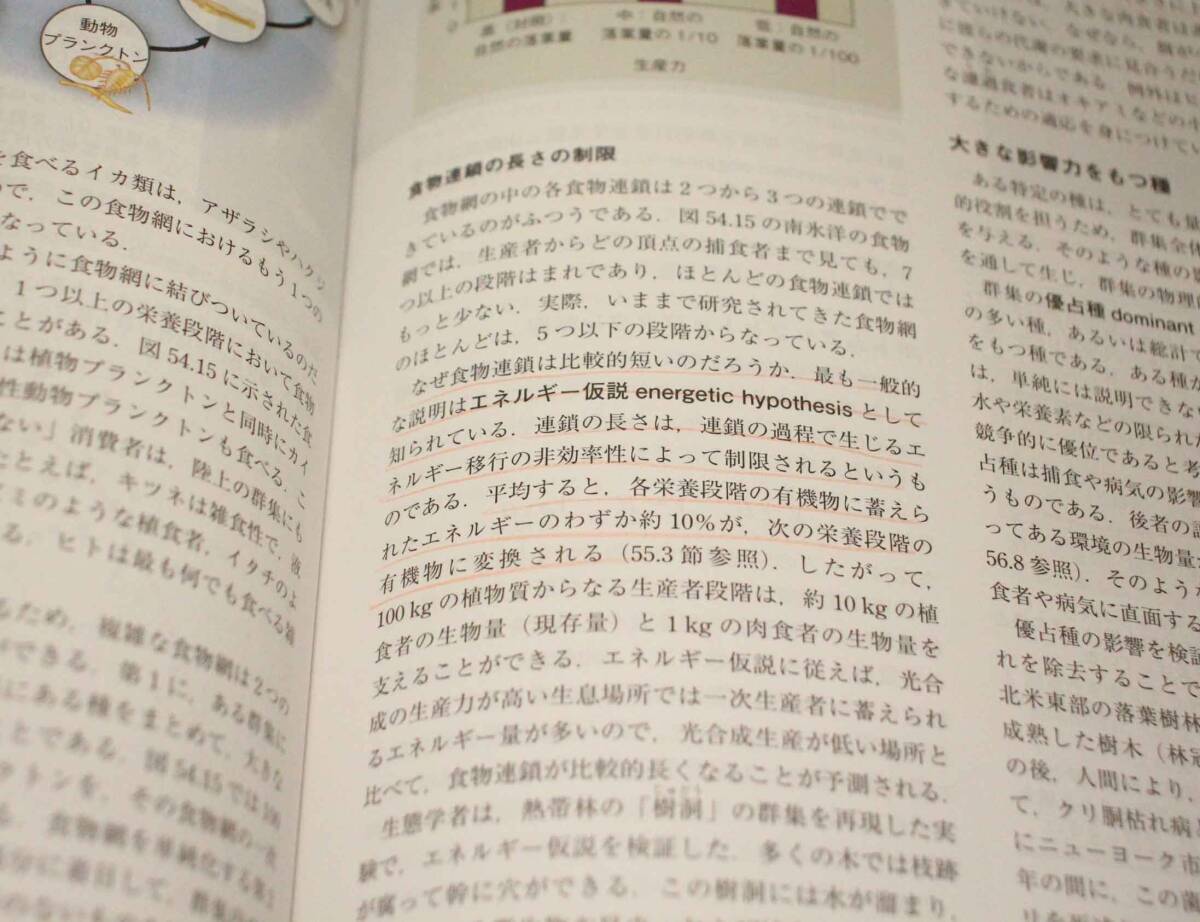 動物
プランクトン
高（対照）：
自然の落葉量
中：自然の
落葉量の 1/10
低：自然の
落葉量の 1/100
生産力
を食べるイカ類は，アザラシやハクジ
で，この食物網におけるもう1つの
なっている．
ように食物網に結びついているのだ
1つ以上の栄養段階において食物
ことがある．図54.15に示された食
は植物プランクトンと同時にカイ
性動物プランクトンも食べる．こ
ない」消費者は，陸上の群集にも
たとえば，キツネは雑食性で，液
ミのような植食者，イタチのよ
る．ヒトは最も何でも食べる雑
るため，複雑な食物網は2つの
ができる．第1に，ある群集に
にある種をまとめて，大きな
ことである．図54.15では
クトンを，その食物網の一
食物網を単純化する第2
分に着目して，群集の
食物連鎖の長さの制限
食物網の中の各食物連鎖は2つから3つの連鎖でで
きているのがふつうである．図54.15の南氷洋の食物
網では，生産者からどの頂点の捕食者まで見ても，7
つ以上の段階はまれであり，ほとんどの食物連鎖では
もっと少ない．実際，いままで研究されてきた食物網
のほとんどは，5つ以下の段階からなっている．
なぜ食物連鎖は比較的短いのだろうか．最も一般的
な説明はエネルギー仮説 energetic hypothesis として
知られている．連鎖の長さは，連鎖の過程で生じるエ
ネルギー移行の非効率性によって制限されるというも
のである．平均すると，各栄養段階の有機物に蓄えら
れたエネルギーのわずか約10%が，次の栄養段階の
有機物に変換される（55.3節参照）．したがって，
100 kg の植物質からなる生産者段階は，約10 kg の植
食者の生物量（現存量）と1 kg の肉食者の生物量を
支えることができる．エネルギー仮説に従えば，光合
成の生産力が高い生息場所では一次生産者に蓄えられ
るエネルギー量が多いので，光合成生産が低い場所と
比べて，食物連鎖が比較的長くなることが予測される．
生態学者は，熱帯林の「樹洞」の群集を再現した実
験で，エネルギー仮説を検証した．多くの木では枝跡
が腐って幹に穴ができる．この樹洞には水が溜まり，
大きな肉食者は
きていけない．なぜなら，
に彼らの代謝の要求に見合うだ
できないからである．例外は
な濾過食者はオキアミなどの
するための適応を身につけてい
大きな影響力をもつ種
ある特定の種は，とても
的役割を担うため，群集全体
を与える．そのような種の
を通して生じ，群集の物理
群集の優占種 dominant
の多い種，あるいは総計で
をもつ種である．ある種が
は，単純には説明できな
水や栄養素などの限られた
競争的に優位であると考
占種は捕食や病気の影響
うものである．後者の
ってある環境の生物量
56.8参照）．そのよう
食者や病気に直面する
優占種の影響を検証
れを除去することで
北米東部の落葉樹林
成熟した樹木（林冠
の後，人間により，
て，クリ胴枯れ病
にニューヨーク市
年の間に，この